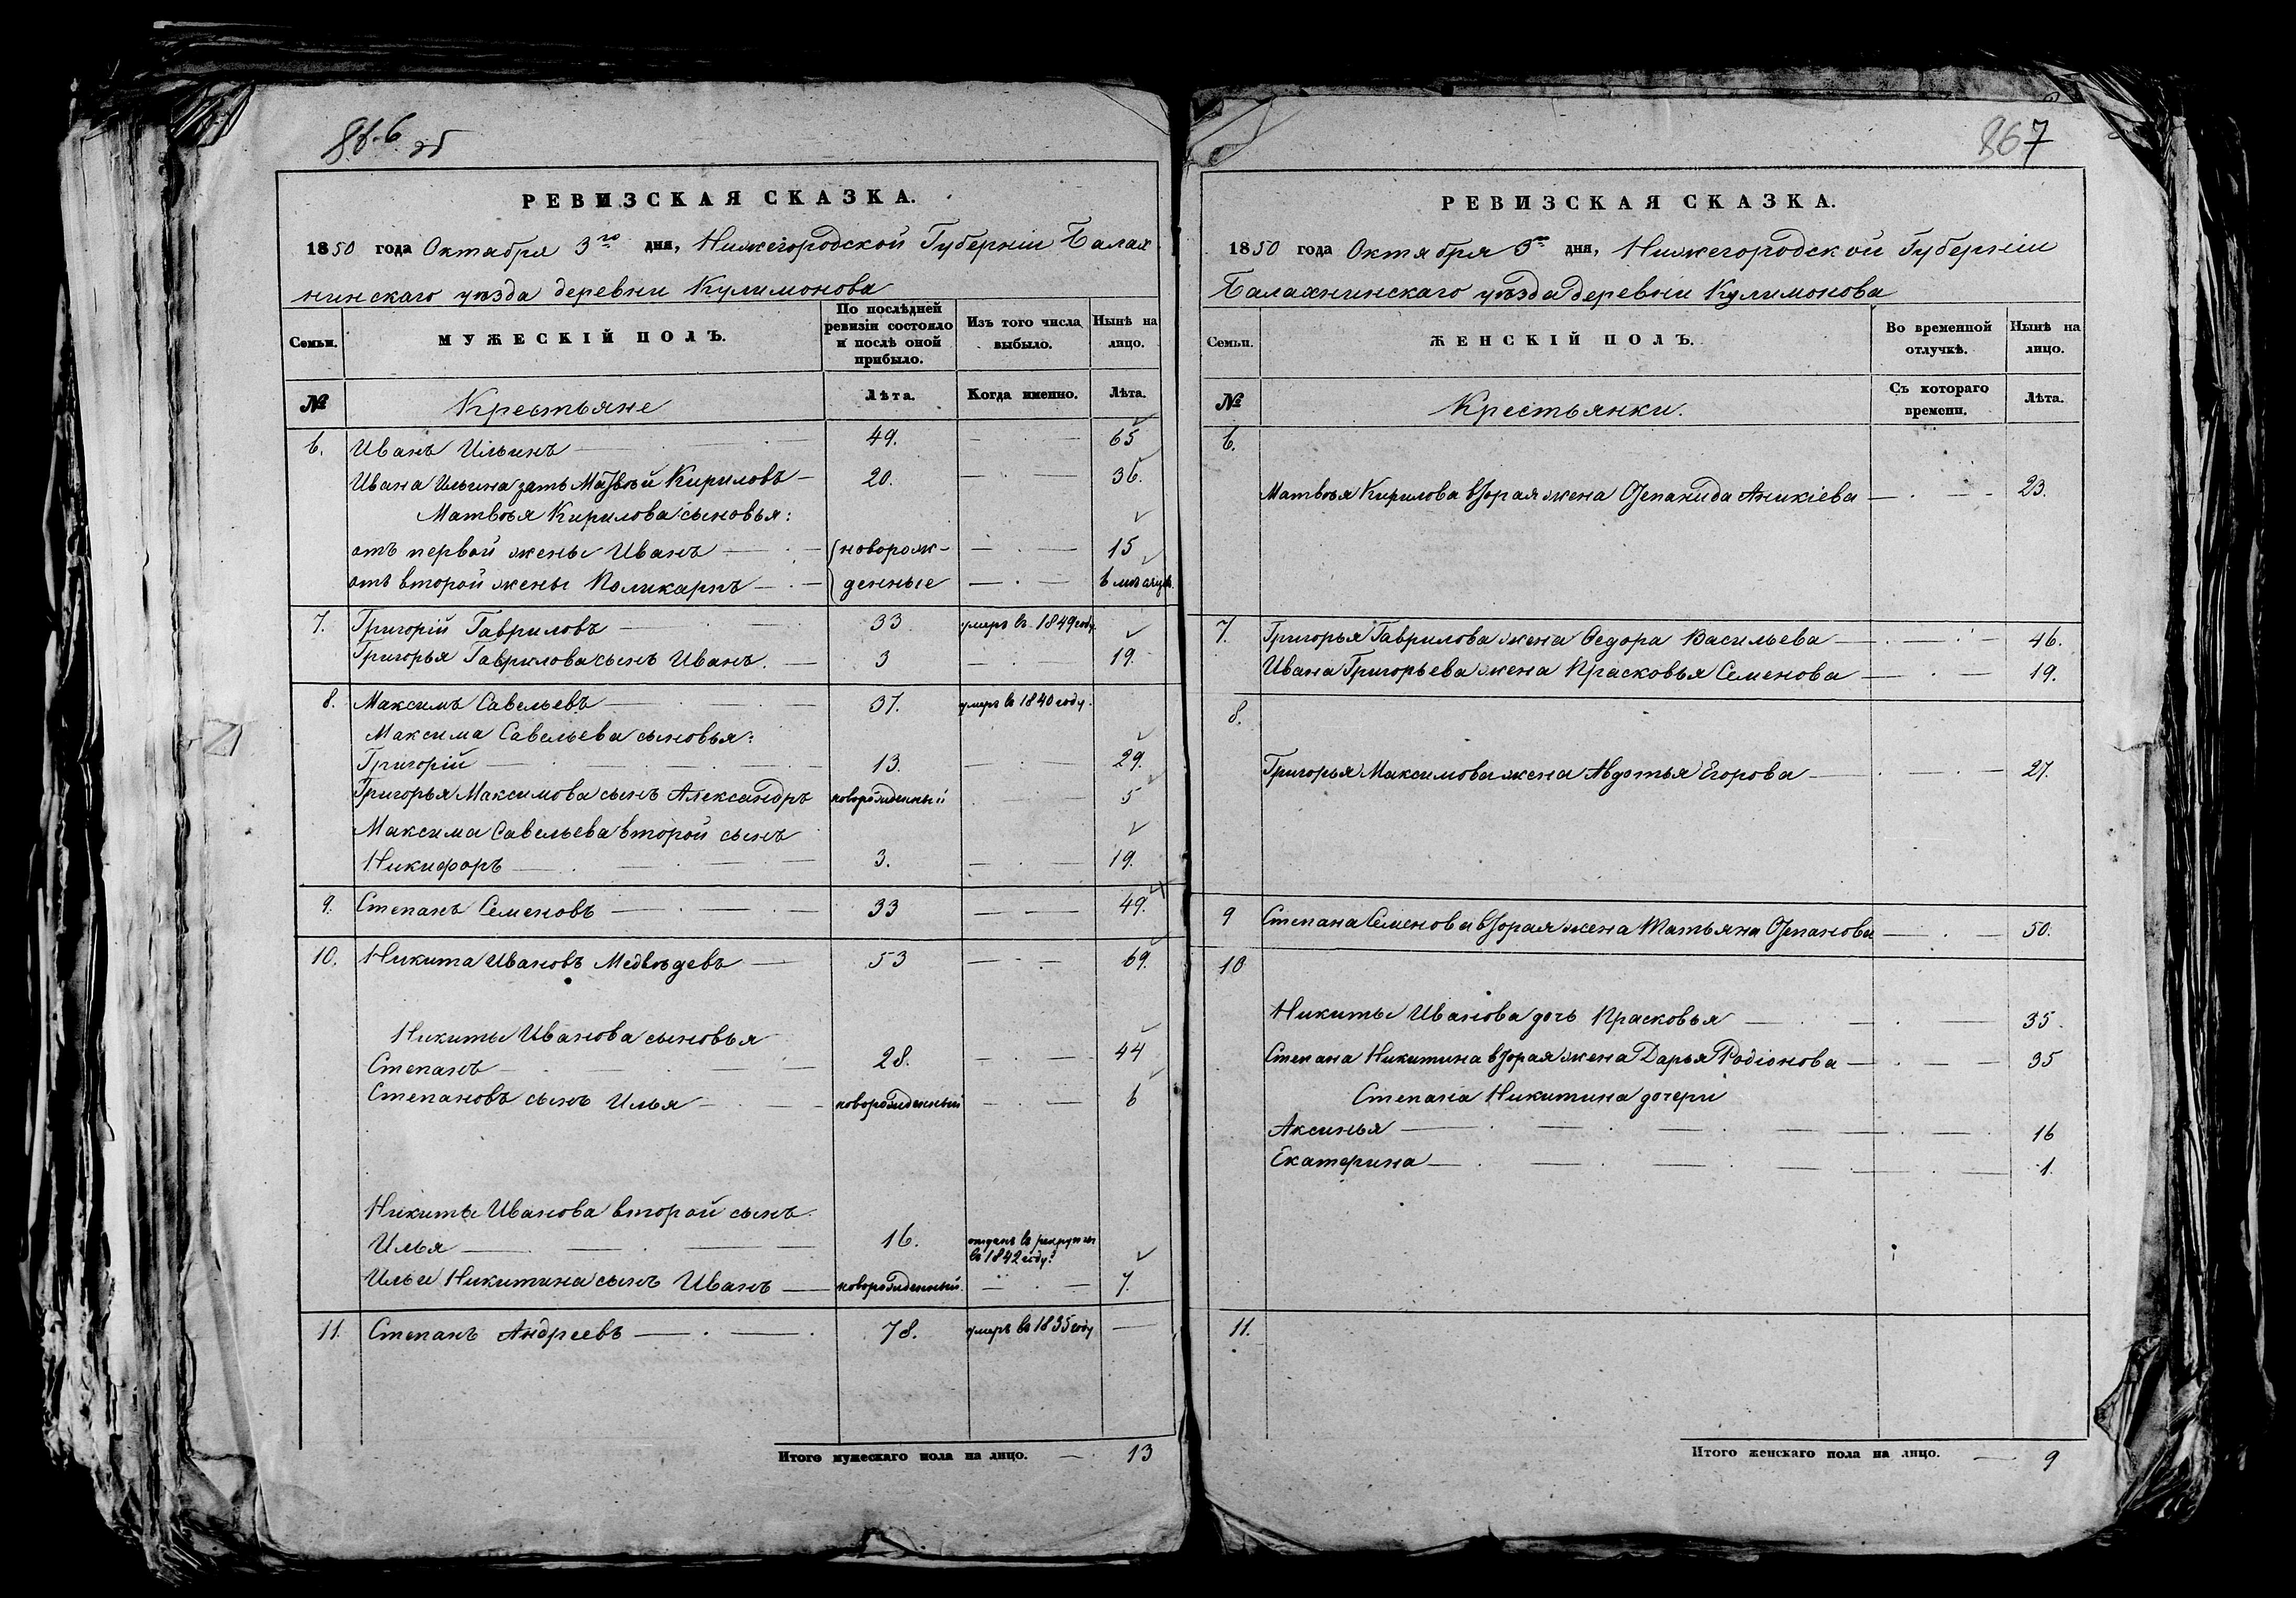 866 об
РЕВИЗСКАЯ СКАЗКА.
1850 года Октября 3го дня, Нижегородской Губерніи Балах
нинскаго уѣзда деревни Кулимонова
Семьи. МУЖЕСКІЙ ПОЛЪ. По послѣдней ревизіи состояло и послѣ оной прибыло. Изъ того числа выбыло. Нынѣ на лицо.
№ Крестьяне Лѣта. Когда именно. Лѣта.
6. Иванъ Ильинъ — 49. — 65
Ивана Ильина зять Матвѣй Кириловъ — 20. — 36.
Матвѣя Кирилова сыновья:
отъ первой жены Иванъ — новорож- — 15
отъ второй жены Поликарпъ — денные — 6 мѣсяцъ.
7. Григорій Гавриловъ — 33 умеръ въ 1849 году.
Григорья Гаврилова сынъ Иванъ. — 3 — 19.
8. Максимъ Савельевъ — 37. умеръ въ 1840 году.
Максима Савельева сыновья:
Григорій — 13. — 29.
Григорья Максимова сынъ Александръ новорожденный — 5
Максима Савельева второй сынъ
Никифоръ — 3. — 19.
9. Степанъ Семеновъ — 33 — 49.
10. Никита Ивановъ Медвѣдевъ — 53 — 69.
Никиты Иванова сыновья
Степанъ — 28. — 44
Степановъ сынъ Илья — новорожденный — 6
Никиты Иванова второй сынъ
Илья — 16. отданъ въ рекруты
въ 1842 году.
Ильи Никитина сынъ Иванъ — новорожденный. — 7.
11. Степанъ Андреевъ — 78. умеръ въ 1835 году —
Итого мужескаго пола на лицо. — 13
867
РЕВИЗСКАЯ СКАЗКА.
1850 года Октября 3го дня, Нижегородской Губерніи
Балахнинскаго уѣзда деревни Кулимонова
Семьи. ЖЕНСКІЙ ПОЛЪ. Во временной отлучкѣ. Нынѣ на лицо.
№ Крестьянки. Съ котораго времени. Лѣта.
6.
Матвѣя Кирилова вторая жена Степанида Аникіева — 23.
7. Григорья Гаврилова жена Федора Васильева — 46.
Ивана Григорьева жена Прасковья Семенова — 19.
8.
Григорья Максимова жена Авдотья Егорова — 27.
9 Степана Семенова вторая жена Татьяна Степанова — 50.
10
Никиты Иванова дочь Прасковья — 35.
Степана Никитина вторая жена Дарья Родіонова — 35
Степана Никитина дочери
Аксинья — 16
Екатерина — 1.
11.
Итого женскаго пола на лицо. — 9